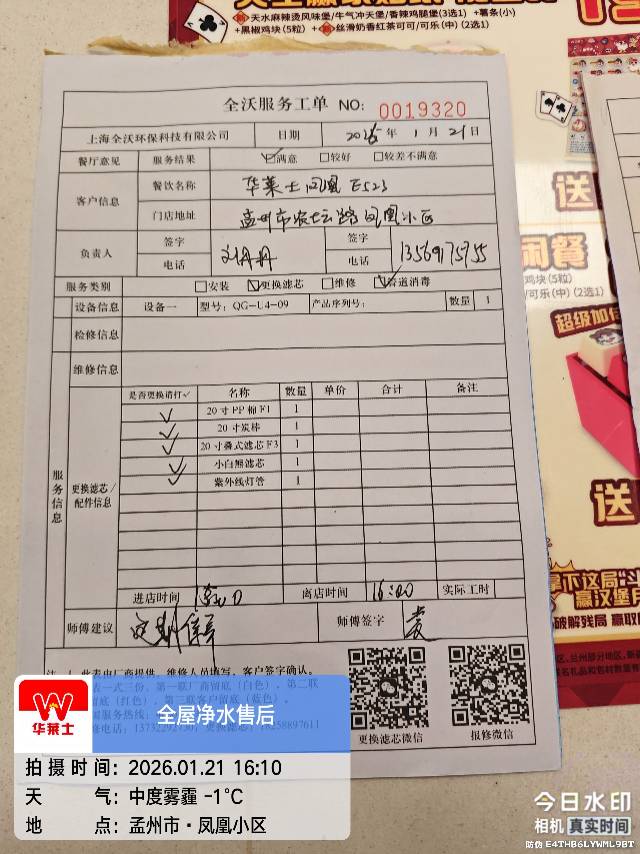 天水麻辣烫风味堡/牛气冲天堡/香辣鸡腿堡(3选1) +薯条(小)
+黑椒鸡块(5粒) + 丝滑奶香红茶可可/可乐(中) (2选1)
全沃服务工单 NO: 0019320
上海全沃环保科技有限公司 日期 2026年1月21日
餐厅意见 服务结果 ☑满意 □较好 □较差不满意
客户信息 餐饮名称 华莱士凤凰 E523
门店地址 孟州市农坛路凤凰小区
负责人 签字 签字
电话 电话 13569175755
服务类别 □安装 ☑更换滤芯 □维修 ☑管道消毒
设备信息 设备一 型号: QG-U4-09 产品序列号: 数量 1
检修信息
维修信息
服务信息
更换滤芯/配件信息
是否更换请打✓ 名称 数量 单价 合计 备注
✓ 20寸PP棉F1 1
✓ 20寸炭棒 1
✓ 20寸叠式滤芯F3 1
✓ 小白熊滤芯 1
✓ 紫外线灯管 1
进店时间 离店时间 16:00 实际工时
师傅建议 师傅签字
注:1.此表由厂商提供,维修人员填写,客户签字确认。
表一式三份,第一联厂商留底(白色),第二联
留底(红色),第三联客户留底(蓝色)。
更换滤芯微信 报修微信
送
闲餐
鸡块(5粒)
/可乐(中) (2选1)
超级加倍
送
拿下这局"斗
赢汉堡
破解残局 赢取
华莱士
全屋净水售后
拍摄时间: 2026.01.21 16:10
天 气: 中度雾霾 -1℃
地 点: 孟州市·凤凰小区
今日水印
相机 真实时间
防伪 E4THB6LYWML9BT